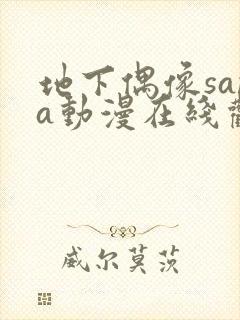 地下偶像sa
a動漫在綫
威尔莫茨